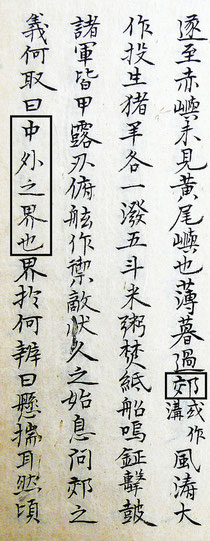 遂至赤嶼未見黃尾嶼也薄暮過郊或作溝風濤大
作投生猪羊各一潑五斗米粥焚紙船鳴鉦擊鼓
諸軍皆甲露刃俯舷作禦敵狀久之始息問郊之
義何取曰中外之界也界於何辨曰懸揣耳然頃